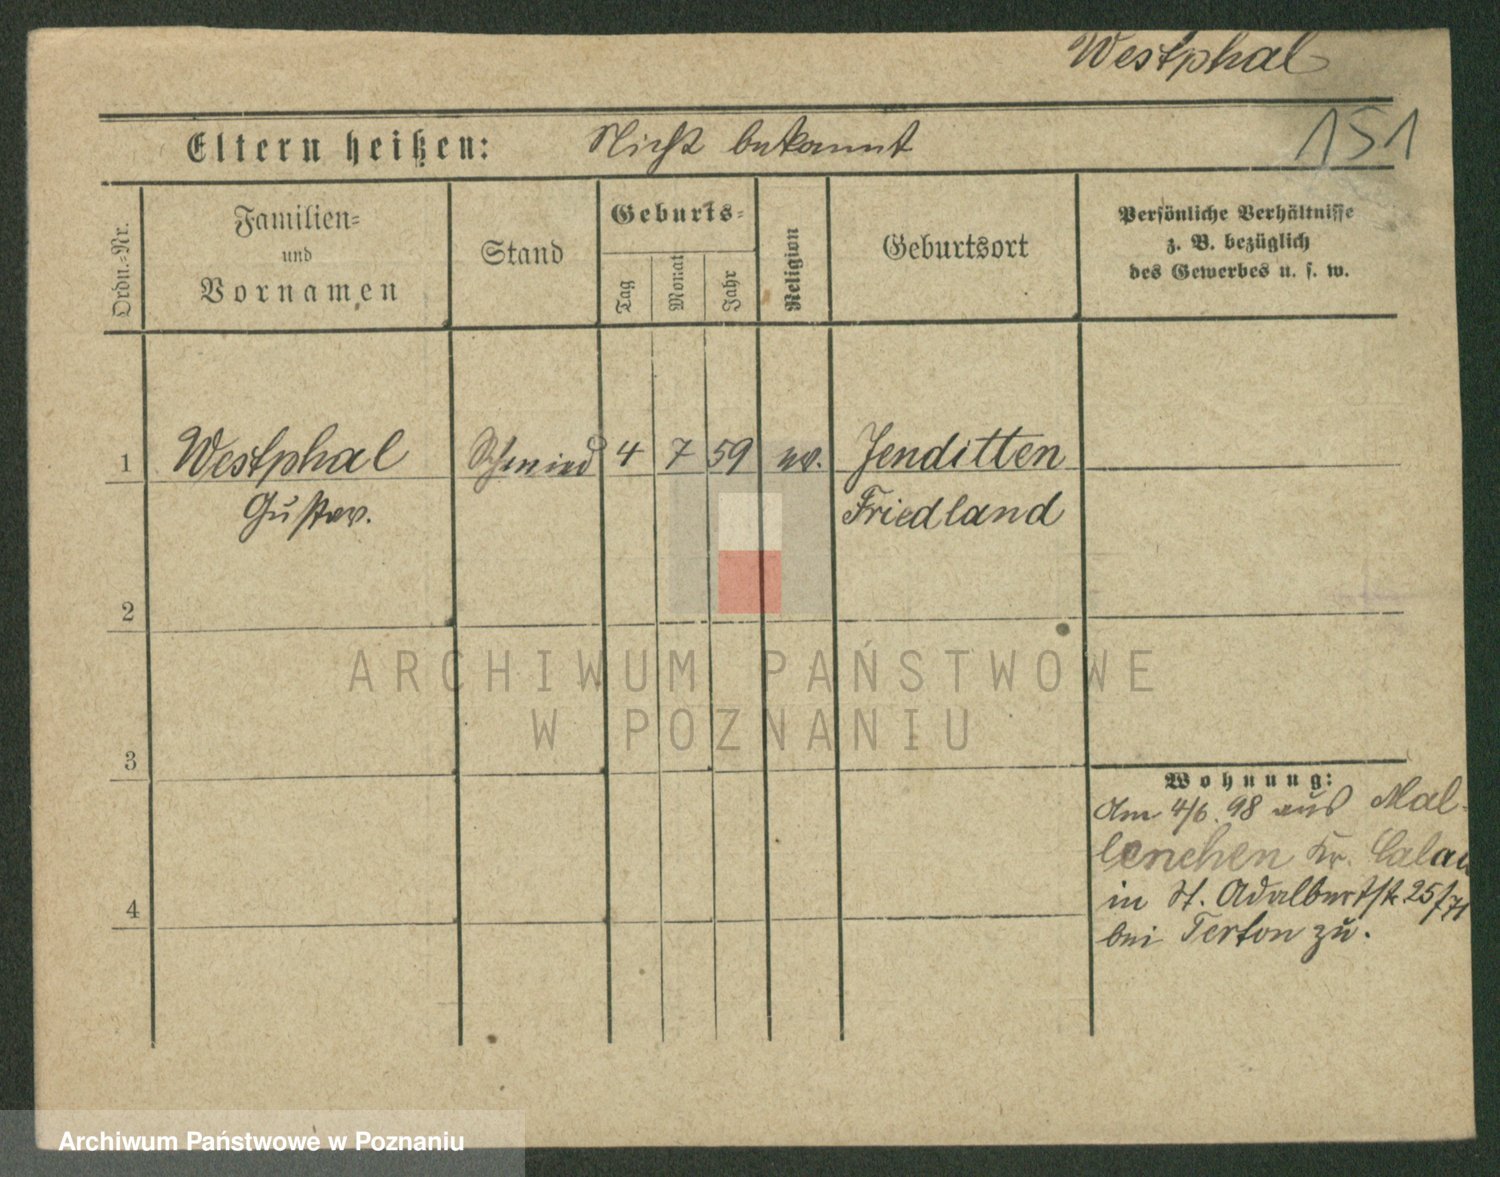 Westphal
151
Eltern heißen: Nicht bekannt
Ordn.-Nr.
Familien-
und
Vornamen
Stand
Geburts-
Tag
Monat
Jahr
Religion
Geburtsort
Persönliche Verhältnisse
z. B. bezüglich
des Gewerbes u. s. w.
1 Westphal Schmied 4 7 59 ev. Jenditten
Gustav. Friedland
2
3
4
Wohnung:
Am 4/6. 98 aus Mal-
lenchen Kr. Calau
in St. Adalbertstr. 25/
bei Terton zu.
ARCHIWUM PAŃSTWOWE
W POZNANIU
Archiwum Państwowe w Poznaniu